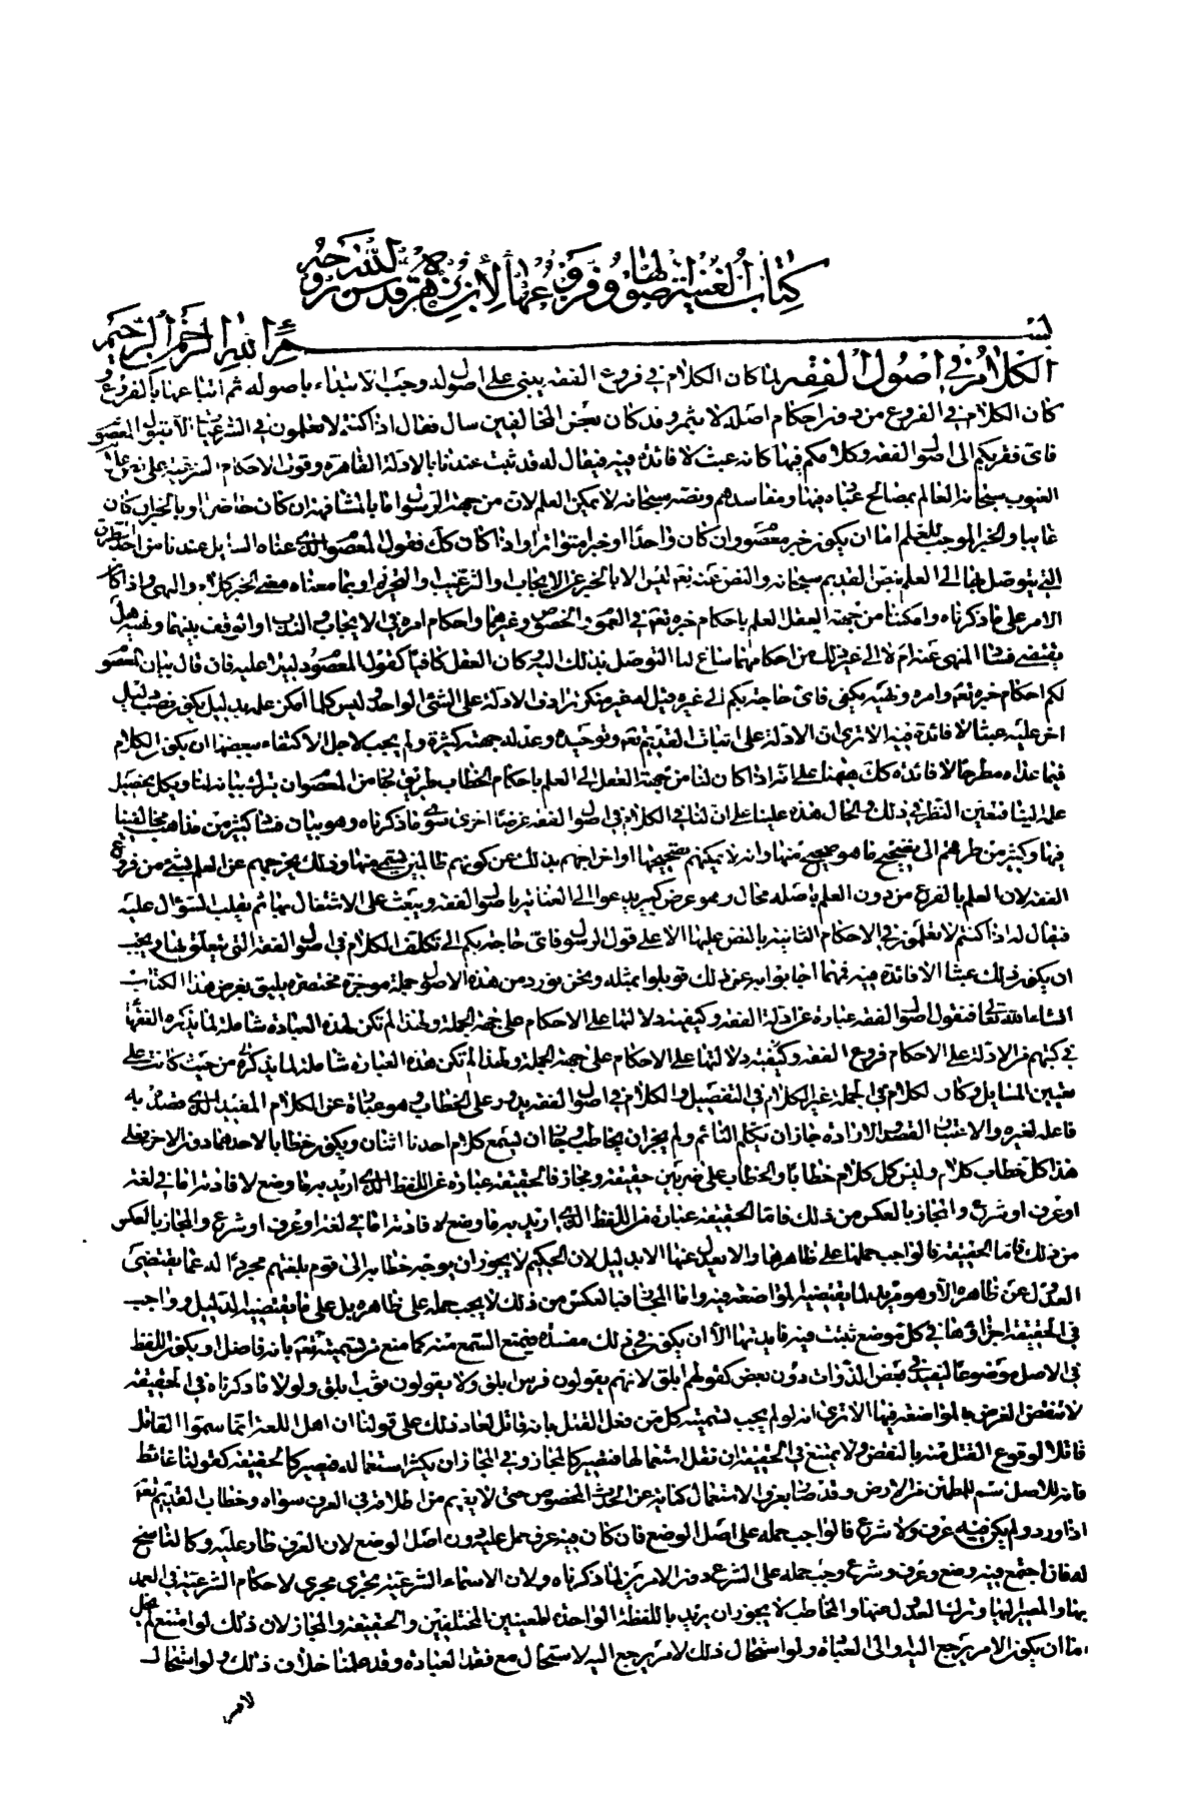 كتاب الغنية اصولها وفروعها لابن زهره قدس الله روحه
بسم الله الرحمن الرحيم
الكلام في اصول الفقه لما كان الكلام في فروع الفقه يبنى على اصول له وجب الابتداء باصوله ثم اتباعها بالفروع و
كان الكلام في الفروع من دون احكام اصله لا يثمر وقد كان بعض المخالفين سال فقال اذا كنتم لا تعملون في الشرعيات الا بقول المعصوم
فاى فقر بكم الى اصول الفقه وكلامكم فيها كانه عبث لا فائدة فيه فيقال له قد ثبت عندنا بالادلة القاهرة وقوف الاحكام الشرعية على نص علام
الغيوب سبحانه العالم بمصالح عباده فيها ومفاسدهم ونصه سبحانه لا يمكن العلم الا من جهة الرسول اما بالمشافهة ان كان حاضرا او بالخبر ان كان
غايبا والخبر الموجب للعلم اما ان يكون خبر معصوم وان كان واحدا او خبر متواترا واذا كان كك فقول المعصوم الذى عناه السايل عندنا من احد الطرق
التي يتوصل بها الى العلم بنص القديم سبحانه والنص عنه تعم ليس الا بالخبر عن الايجاب والترغيب والتحريم او بما معناه معنى الخبر كالامر والنهى واذا كان
الامر على ما ذكرناه وامكننا من جهة العقل العلم باحكام خبره تعم في العموم والخصوص وغيرهما واحكام امره في الايجاب والندب او الوقف بينهما ونهيه هل
يقتضى فساد المنهى عنه ام لا الى غير ذلك من احكامهما ساغ لنا التوصل بذلك اليه وكان العقل كافيا كقول المعصوم لبيزا عليه فان قال بيان المعصوم
لكم احكام خبره تعم وامره ونهيه يكفى فاى حاجة بكم الى غيره قيل له غير منكر ترادف الادلة على الشئ الواحد وليس كلما امكن علمه بدليل يكون نصب دليل
اخر عليه عبثا لا فائدة فيه الا ترى ان الادلة على اثبات القديم تعم وتوحيده وعدله جهته كثيرة ولم يجب لاجل الاكتفاء ببعضها ان يكون الكلام
فيما عداه مطرحا لا فائدة فيه كك هيهنا على انه اذا كان لنا من جهة العقل الى العلم باحكام الخطاب طريق لجا من المعصوم ان يترك بيانه لنا ويكل تحصيل
علمه الينا فتعين النظر في ذلك والحال هذه علينا على ان لنا في الكلام في اصول الفقه غرضا اخر سوى ما ذكرناه وهو بيان فساد كثير من مذاهب مخالفينا
فيها وكثير من طرقهم الى تصحيح ما هو صحيح منها وانه لا يمكنهم تصحيحها او اخراجهم بذلك عن كونهم عالمين بشئ منها وذلك يخرجهم عن العلم بشئ من فروع
الفقه لان العلم بالفرع من دون العلم باصله محال وهو غرض كبير يدعوا الى العناية باصول الفقه ويبعث على الاشتغال بها ثم يقلب السؤال عليه
فيقال له اذا كنتم لا تعملون في الاحكام الثابتة بالنص عليها الا على قول الرسول فاى حاجة بكم الى تكلف الكلام في اصول الفقه التي يتعلق بها ويجب
ان يكون ذلك عبثا لا فائدة فيه فمهما اجابوا به عن ذلك قوبلوا بمثله ونحن نورد من هذه الاصول جملة موجزة مختصرة يليق بغرض هذا الكتاب
انشاء الله تعالى فنقول اصول الفقه عبارة عن ادلة الفقه وكيفية دلالتها على الاحكام على جهة الجملة ولهذا لم تكن لهذه العبادة شاملة لما يذكره الفقهاء
في كتبهم من الادلة على الاحكام فروع الفقه وكيفية دلالتها على الاحكام على جهة الجملة ولهذا لم تكن هذه العباره شاملة لما يذكره من حيث كانت على
تعيين المسايل وكان الكلام في الجملة غير الكلام في التفصيل والكلام في اصول الفقه يدور على الخطاب وهو عبارة عن الكلام المفيد الذى قصد به
فاعله لغيره والاعتبار القصد والارادة جاز ان يتكلم النائم ولم يجز ان يخاطب وجاز ان يسمع كلام احدنا اثنان ويكون خطابا لاحدهما دون الاخر فعلى
هذا كل خطاب كلام وليس كل كلام خطابا والخطاب على ضربين حقيقة ومجاز فالحقيقة عبارة عن اللفظ الذى اريد به ما وضع لافادته اما في لغة
او عرف او شرع والمجاز بالعكس من ذلك فاما الحقيقة عبارة من اللفظ الذى اريد به ما وضع لافادته اما في لغة او عرف او شرع والمجاز بالعكس
من ذلك فاما الحقيقة فالواجب حملها على ظاهرها ولا يعدل عنها الا بدليل لان الحكيم لا يجوز ان يوجه خطابه الى قوم بلغتهم مجردا له عما يقتضى
العدول عن ظاهره الا وهو مريد لما يقتضيه المواضعة فيه واما المجاز فبالعكس من ذلك لا يجب حمله على ظاهره بل على ما يقتضيه الدليل وواجب
في الحقيقة اجراؤها في كل موضع ثبت فيه فايدتها الا ان يكون في ذلك مفسدة فيمنع السمع منه كما منع من تسميته تعم بانه فاضل او يكون اللفظ
في الاصل موضوعا ليفيد في بعض الذوات دون بعض كقولهم ابلق لانهم يقولون فرس ابلق ولا يقولون ثوب ابلق ولولا ما ذكرناه في الحقيقة
لانتقض الغرض بالمواضعة فيها الا ترى انه لو لم يجب تسمية كل من فعل القتل بانه قاتل لعاد ذلك على قولنا ان اهل اللغة انما سموا القاتل
قاتلا لوقوع القتل منه بالنقض ولا يمتنع في الحقيقة ان نقل استعمالها فيصير كالمجاز وفي المجاز ان يكثر استعماله فيصير كالحقيقة كقولنا غائط
فانه للاصل اسم للمطمئن من الارض وقد صار بعرف الاستعمال كناية عن الحدث المخصوص حتى لا يفهم من اطلاقه في العرف سواه وخطاب القديم تعم
اذا ورد ولم يكن فيه عرف ولا شرع فالواجب حمله على اصل الوضع فان كان فيه عرف حمل عليه دون اصل الوضع لان العرف طار عليه وكالناسخ
له فاذا اجتمع فيه وضع وعرف وشرع وجب حمله على الشرع دون الامرين لما ذكرناه ولان الاسماء الشرعية يجرى مجرى لاحكام الشرعية في العمل
بها والمصير اليها وترك العدول عنها والمخاطب لا يجوز ان يريد باللفظة الواحدة المعنيين المختلفين والحقيقة والمجاز لان ذلك لو امتنع لم يخل
اما ان يكون الامر يرجع اليه والى العبارة ولو استحال ذلك لامر يرجع اليه لاستحال مع فقد العبارة وقد علمنا خلاف ذلك ولو استحال
لامر